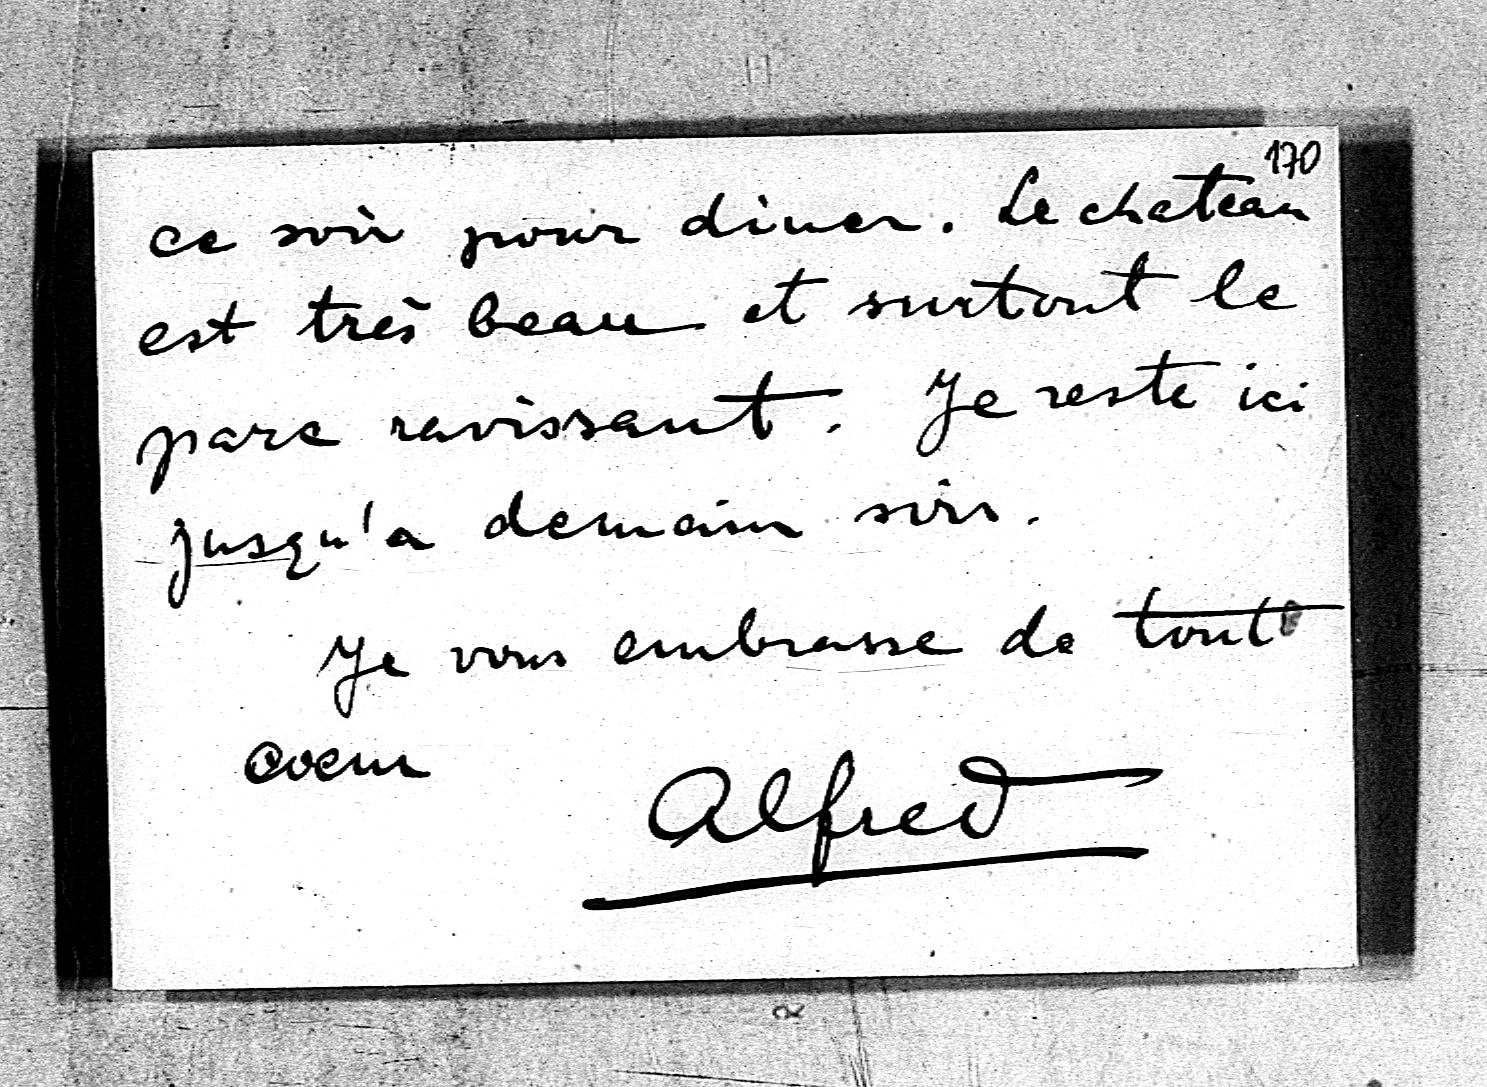 170
ce soir pour diner. Le chateau
est très beau et surtout le
parc ravissant. Je reste ici
jusqu'a demain soir.
Je vous embrasse de tout
coeur
Alfred